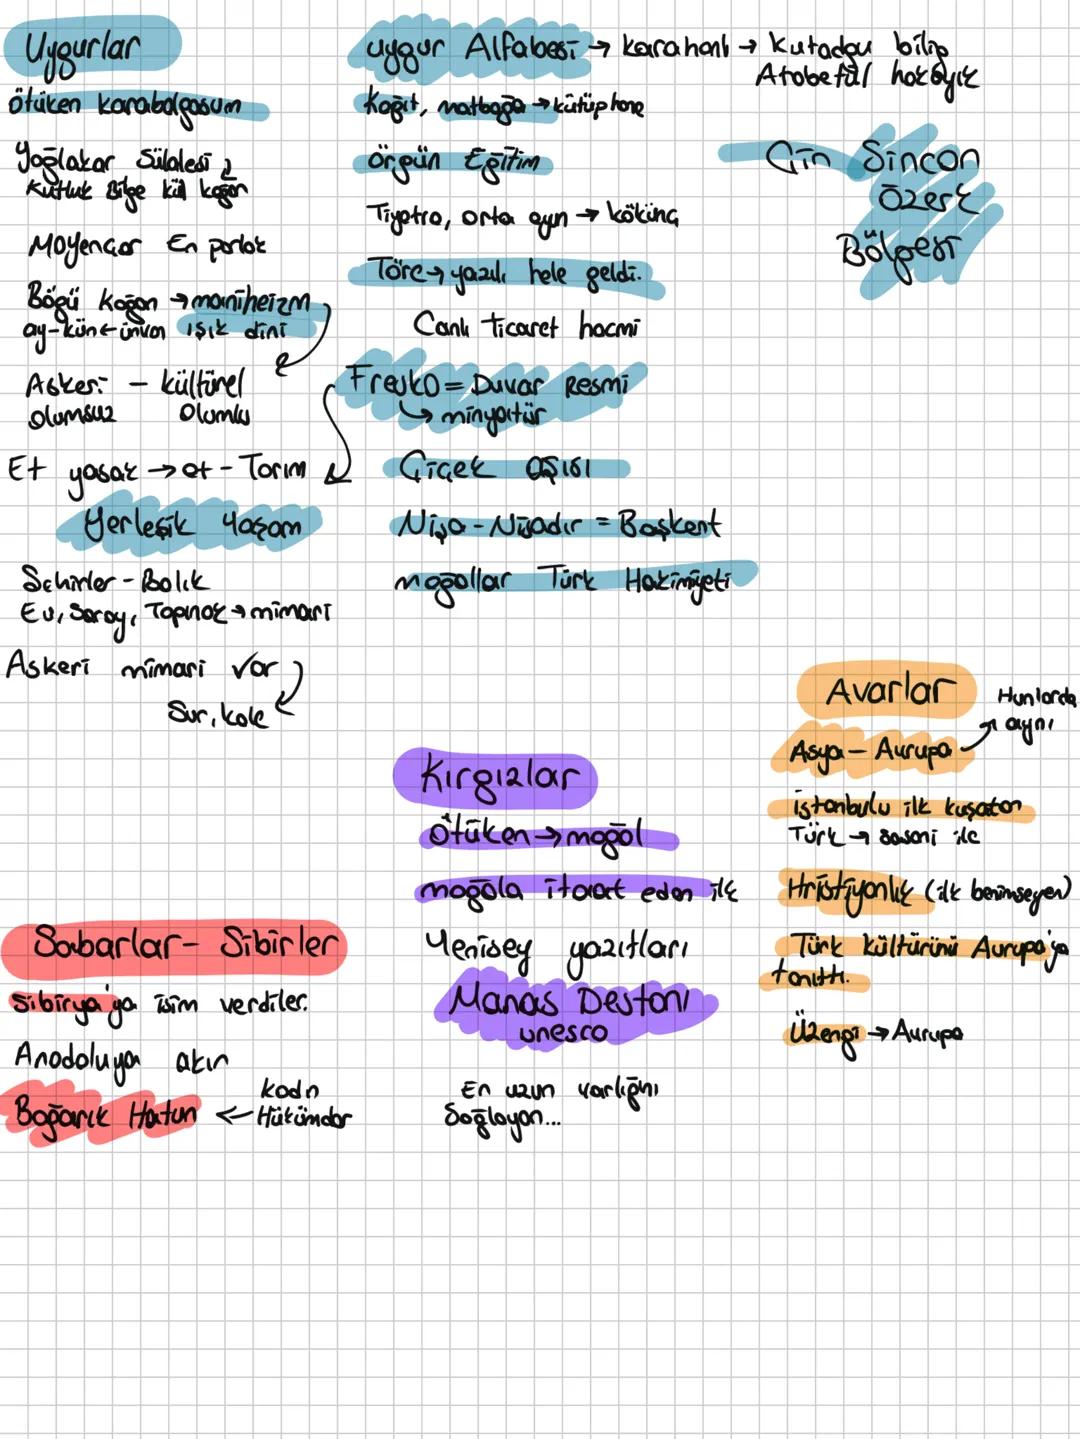 Uygurlar
ötüken karabalgasum
Yağlakar Sülalesi
Kutluk Bilge kül kağan
Moyençor En parlak
Bögü Kağan → maniheizm
ay-kün ← ünvan ışık dini
Askeri - kültürel
olumsuz olumlu
Et yasak → ot - Tarım
Yerleşik Yaşam
Şehirler - Balık
Ev, Saray, Tapınak → mimari
Askeri mimari var
Sur, kale
uygur Alfabesi → karahanlı → Kutadgu bilig
Atabetül hakayık
Kağıt, matbağa → kütüphane
örgün Eğitim
Tiyatro, orta oyun → kökünç
Töre → yazılı hale geldi.
Canlı ticaret hacmi
Fresko = Duvar Resmi
→ minyatür
Çiçek aşısı
Nişa - Nişadır = Başkent
moğollar Türk Hakimiyeti
Çin Sincan
Özerk
Bölgesi
Avarlar
Asya - Avrupa
Hunlarda
aynı
istanbulu ilk kuşatan
Türk → sasani ile
Hristiyanlık (ilk benimseyen)
Türk kültürünü Avrupa'ya
tanıttı.
Üzengi → Avrupa
Kırgızlar
Ötüken → moğol
moğola itaat eden ilk
Yenisey yazıtları
Manas Destanı
unesco
En uzun varlığını
Sağlayan...
Sabarlar - Sibirler
Sibirya'ya isim verdiler.
Anadoluya akın
Boğarık Hatun ← kadn
Hükümdar